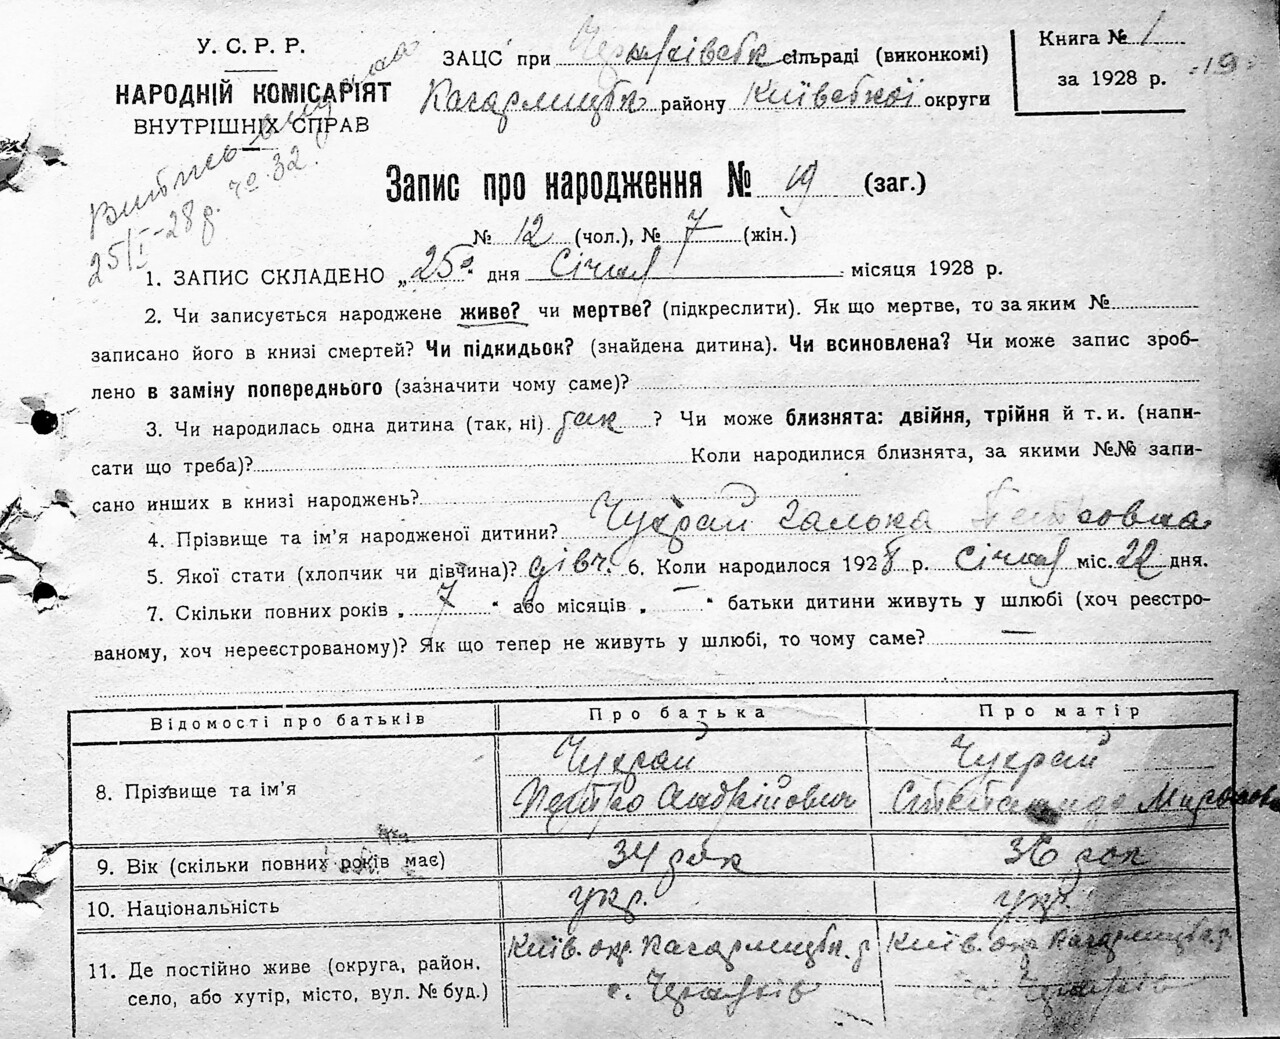 У. С. Р. Р.
НАРОДНІЙ КОМІСАРІЯТ
ВНУТРІШНІХ СПРАВ
ЗАЦС при сільраді (виконкомі)
Кагарлицьк району Київської округи
Книга № 1
за 1928 р.
19
Витпись
25/I-28 р. 32.
Запис про народження № 19 (заг.)
№ 12 (чол.), № 7 (жін.)
1. ЗАПИС СКЛАДЕНО „25го“ дня Січня місяця 1928 р.
2. Чи записується народжене живе? чи мертве? (підкреслити). Як що мертве, то за яким №
записано його в книзі смертей? Чи підкидьок? (знайдена дитина). Чи всиновлена? Чи може запис зроб-
лено в заміну попереднього (зазначити чому саме)?
3. Чи народилась одна дитина (так, ні) так ? Чи може близнята: двійня, трійня й т. и. (напи-
сати що треба)? Коли народилися близнята, за якими №№ запи-
сано инших в книзі народжень?
4. Прізвище та ім'я народженої дитини? Чухрай Галька Петровна
5. Якої статі (хлопчик чи дівчина)? дівч. 6. Коли народилося 1928 р. Січня міс. 22 дня.
7. Скільки повних років „ 7 “ або місяців „ — “ батьки дитини живуть у шлюбі (хоч реєстро-
ваному, хоч нереєстрованому)? Як що тепер не живуть у шлюбі, то чому саме? —
Відомості про батьків Про батька Про матір
8. Прізвище та ім'я Чухрай Чухрай
Петро
9. Вік (скільки повних років має) 34 рок 36 рок
10. Національність укр. укр.
11. Де постійно живе (округа, район, Київ. окр. Кагарлицьк. р Київ. окр Кагарлицьк. р.
село, або хутір, місто, вул. № буд.) с. с.